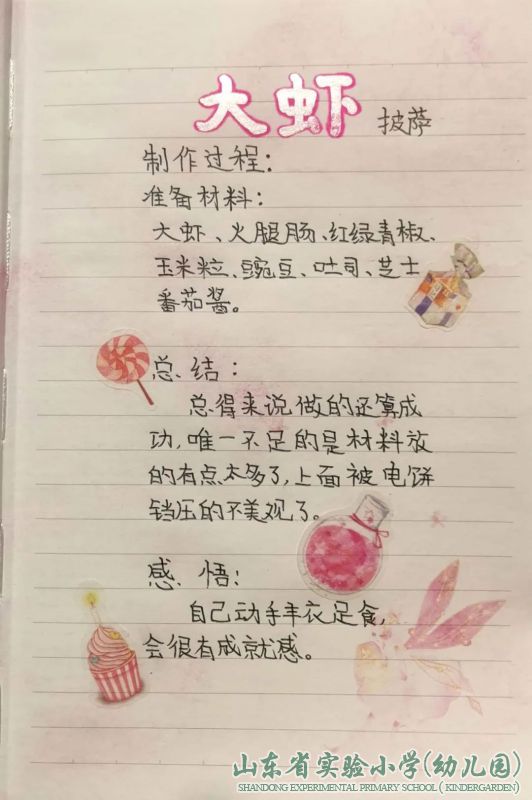 大虾 披萨
制作过程：
准备材料：
大虾、火腿肠、红绿青椒、
玉米粒、豌豆、吐司、芝士
番茄酱。
总结：
总得来说做的还算成
功，唯一不足的是材料放
的有点太多了，上面被电饼
铛压的不美观了。
感悟：
自己动手丰衣足食，
会很有成就感。
山东省实验小学(幼儿园)
SHANDONG EXPERIMENTAL PRIMARY SCHOOL ( KINDERGARDEN)